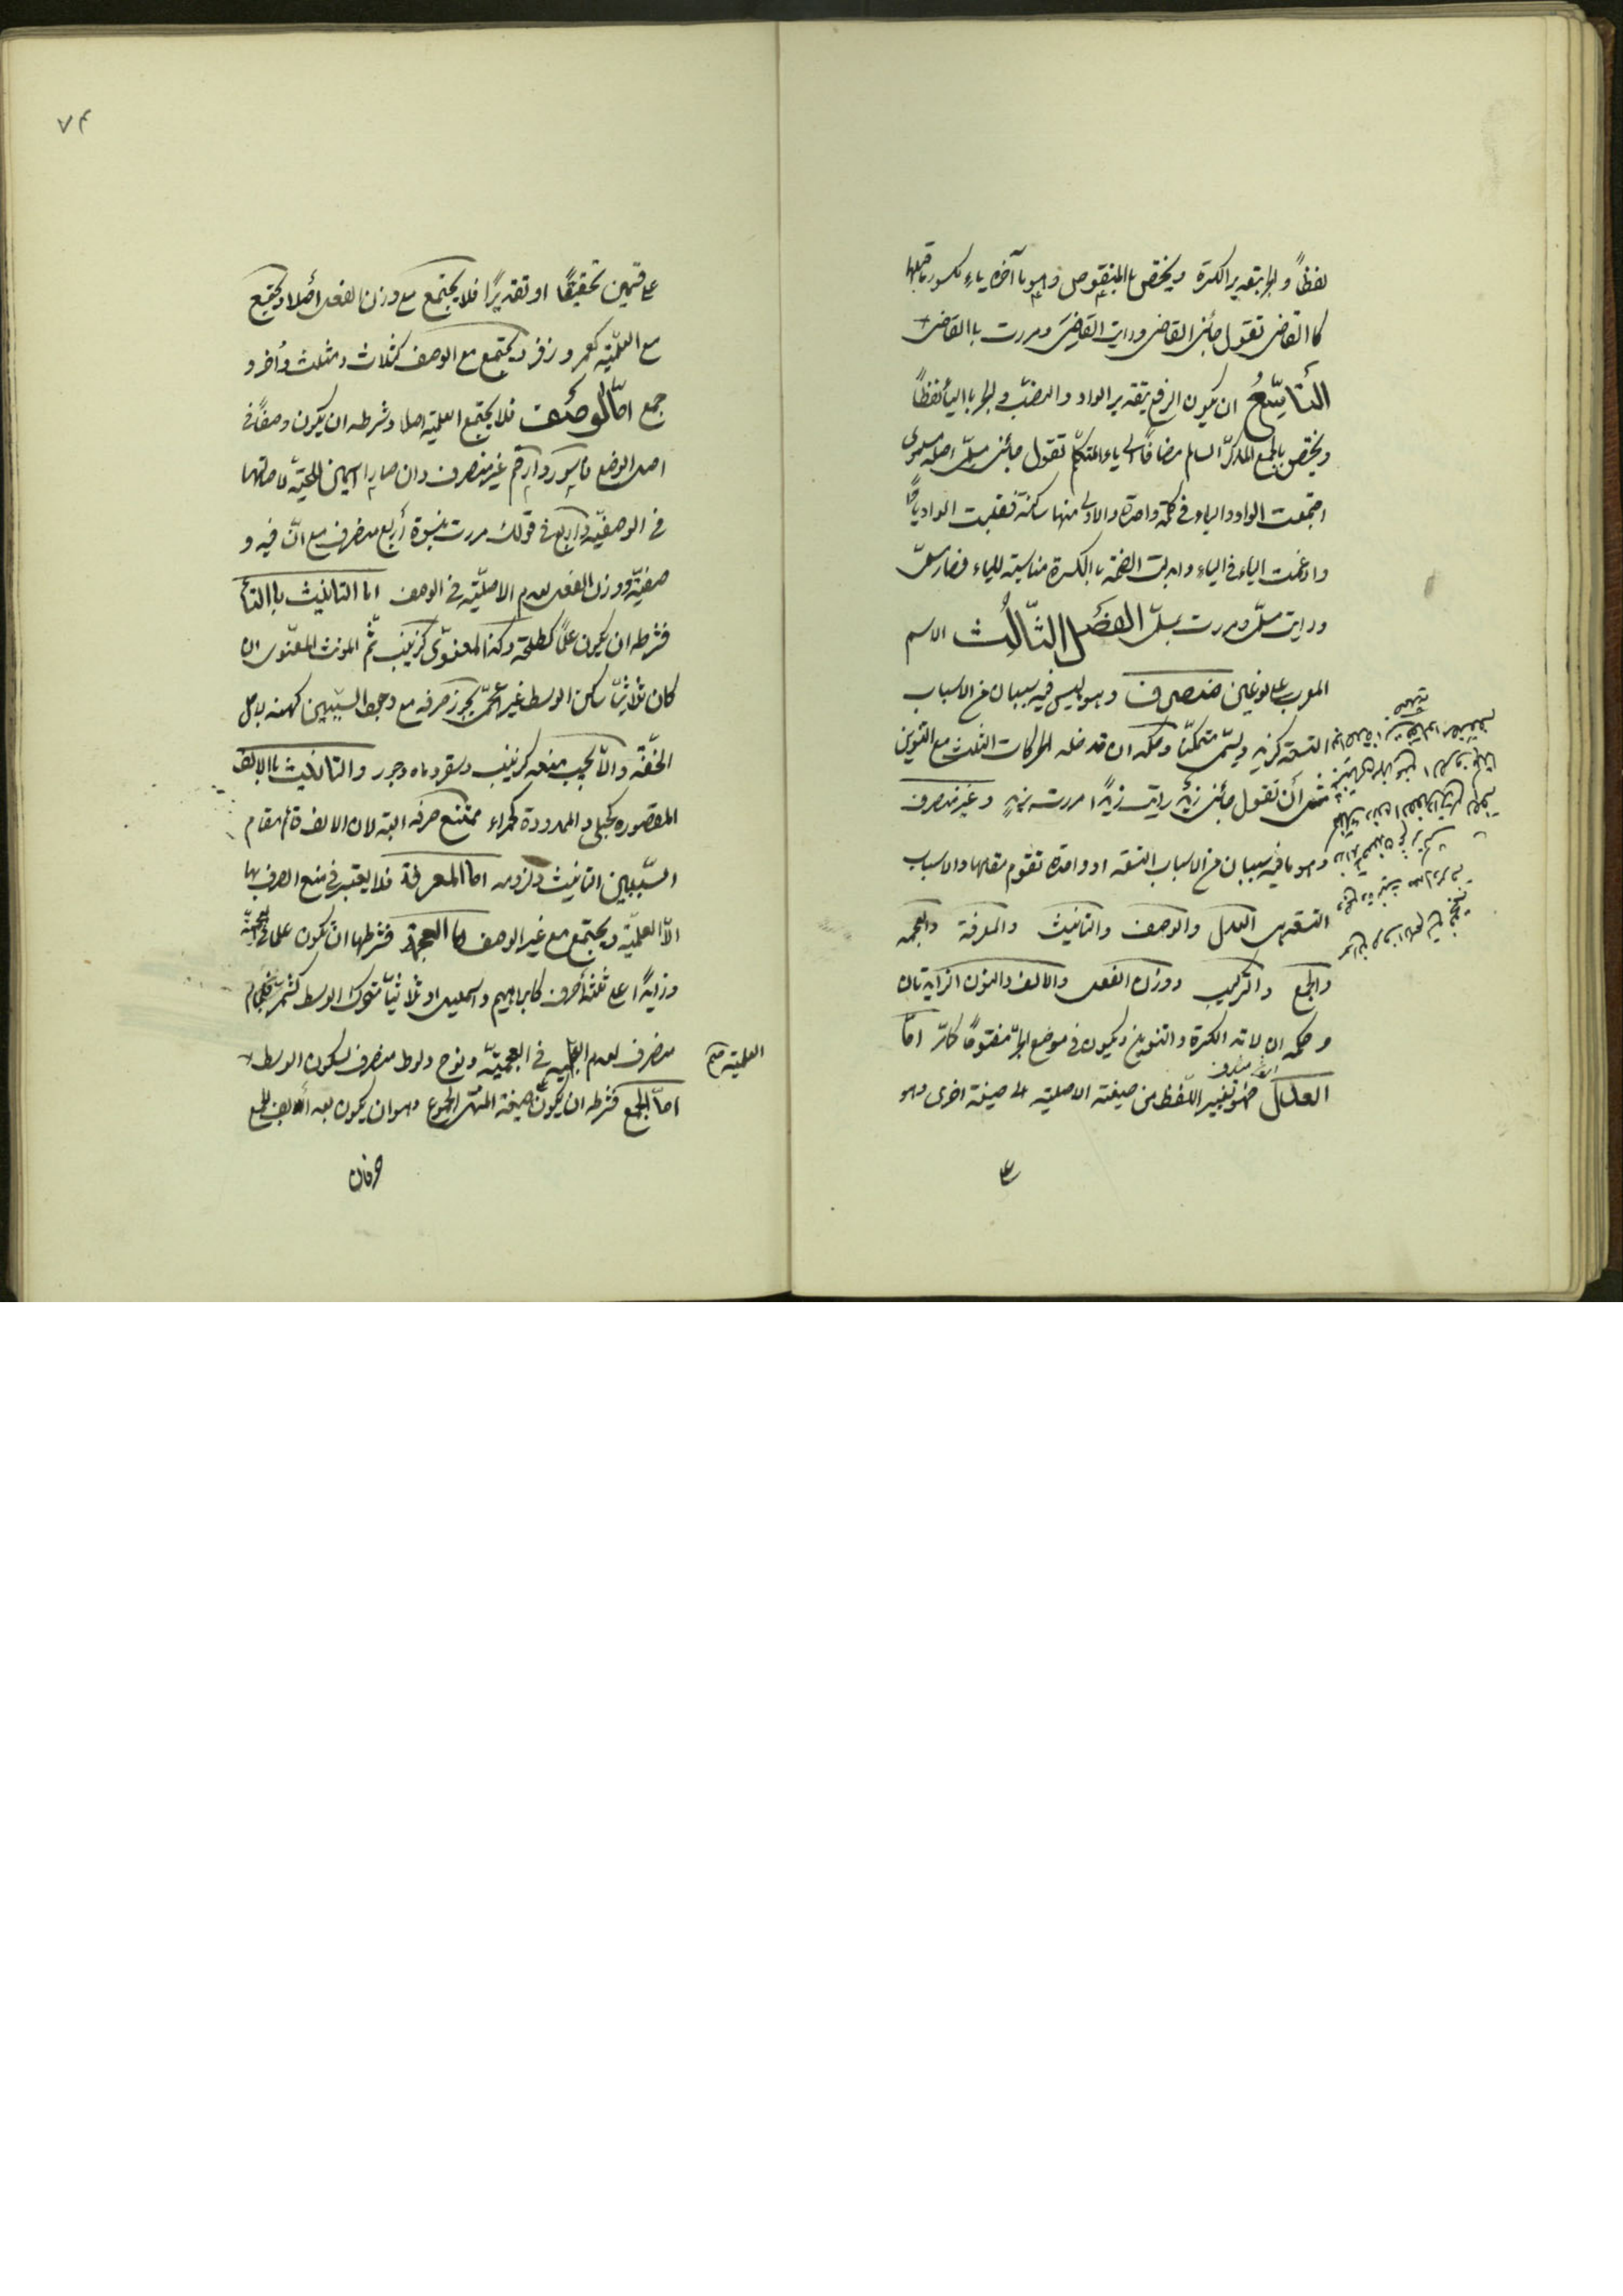 لفظًا والجر بتقدير الكسرة ويختص بالمنقوص وهو ما آخره ياء مكسور ما قبلها
كالقاضى تقول جائنى القاضى ورايت القاضىَ ومررت باالقاضى
التاسعُ ان يكون الرفع بتقدير الواو والنصب والجر باالياء لفظاً
ويختص بالجمع المذكر السالم مضافا الى ياء المتكلم تقول جائنى مسلمى اصله مسلموى
اجتمعت الواو والياء فى كلمة واحدة والاولى منهما ساكنة فقلبت الواو ياءً
وادغمت الياء فى الياء وابدلت الضمة باالكسرة مناسبة للياء فصار مسلمى
ورايت مسلمى ومررت بمسلمى الفصل الثالث الاسم
المعرب على نوعين منصرف وهو ما ليس فيه سببان من الاسباب
التسعة كزيد ويسمى متمكنا وحكمه ان تدخله الحركات الثلث مع التنوين
مثل أن تقول جائنى زيدٌ رايت زيدًا مررت بزيدٍ وغير منصرف
وهو ما فيه سببان من الاسباب التسعة او واحدة تقوم مقامها والاسباب
التسعة هى العدل والوصف والتانيث والمعرفة والعجمه
والجمع والتركيب ووزن الفعل والالف والنون الزايدتان
وحكمه ان لا تدخله الكسرة والتنوين ويكون فى موضع الجر مفتوحًا كامر امّا
العدل فهو تغيير اللفظ من صيغته الاصلية الى صيغة اخرى وهو
ع
٧٣
على قسمين تحقيقًا او تقديرًا فلا يجتمع مع وزن الفعل أصلا ويجتمع
مع العلمية كعمر وزفر ويجتمع مع الوصف كثلاث ومثلث وأخر و
جمع امّا الوصف فلا يجتمع العلمية اصلا وشرطه ان يكون وصفًا فى
اصل الوضع فاسود وارقم غير منصرف وان صارا اسمين للحية لاصالتهما
فى الوصفية واربع فى قولك مررت بنسوة أربع منصرف مع انّ فيه و
صفيّة ووزن الفعل لعدم الاصليّة فى الوصف اما التانيث باالتأ
فشرطه ان يكون علماً كطلحة وكذا المعنوى كزينب ثمّ المونث المعنوى ان
كان ثلاثيّا ساكن الوسط غير عجمىّ يجوز صرفه مع وجود السببين كهند لاجل
الخفّة والاّ يجب منعه كزينب وسقر وماه وجور والتانيث باالالف
المقصوره كحبلى والممدودة كحمراء ممتنع صرفه البتة لان الالف قائم مقام
السّببين التانيث ولزومه امّا المعرفة فلا يعتبر فى منع الصرف بها
الاّ العلميّة ويجتمع مع غير الوصف امّا العجمة فشرطها ان تكون علما فى العجميّة
وزايدًا على ثلثة أحرف كابراهيم واسمعيل او ثلاثيّا متحرك الوسط كشتر فلجام
منصرف لعدم العلمية فى العجميّة ونوح ولوط منصرف لسكون الوسط
العلمية صح
امّا الجمع فشرطه ان يكون صيغة المنتهى الجموع وهو ان يكون بعد ألف الجمع
حرفان